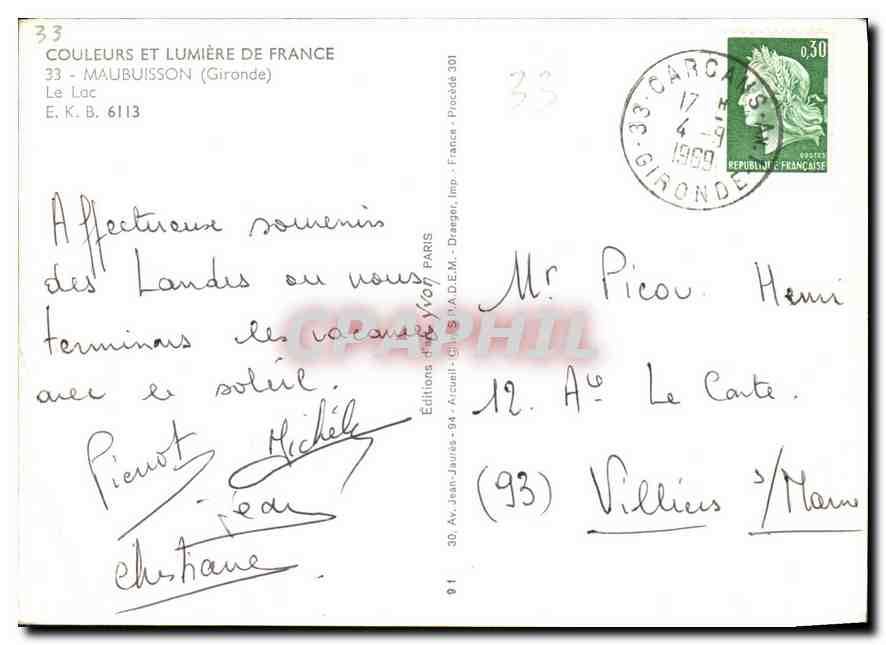 33
COULEURS ET LUMIÈRE DE FRANCE
33 - MAUBUISSON (Gironde)
Le Lac
E. K. B. 6113
33
0,30
POSTES
REPUBLIQUE FRANÇAISE
33-CARCANS-
17 H
4 -9
1969
GIRONDE
Affectueux souvenirs
des Landes ou nous
terminons les vacances
avec le soleil.
Pierrot Michèle
jean
Christiane
Éditions d'art yvon PARIS
30, Av. Jean-Jaurès - 94 - Arcueil - S.P.A.D.E.M. - Draeger, Imp. - France - Procédé 301
9 1
Mr Picou. Henri
12. Ave Le Conte.
(93) Villiers s/Marne
CPAPHIL